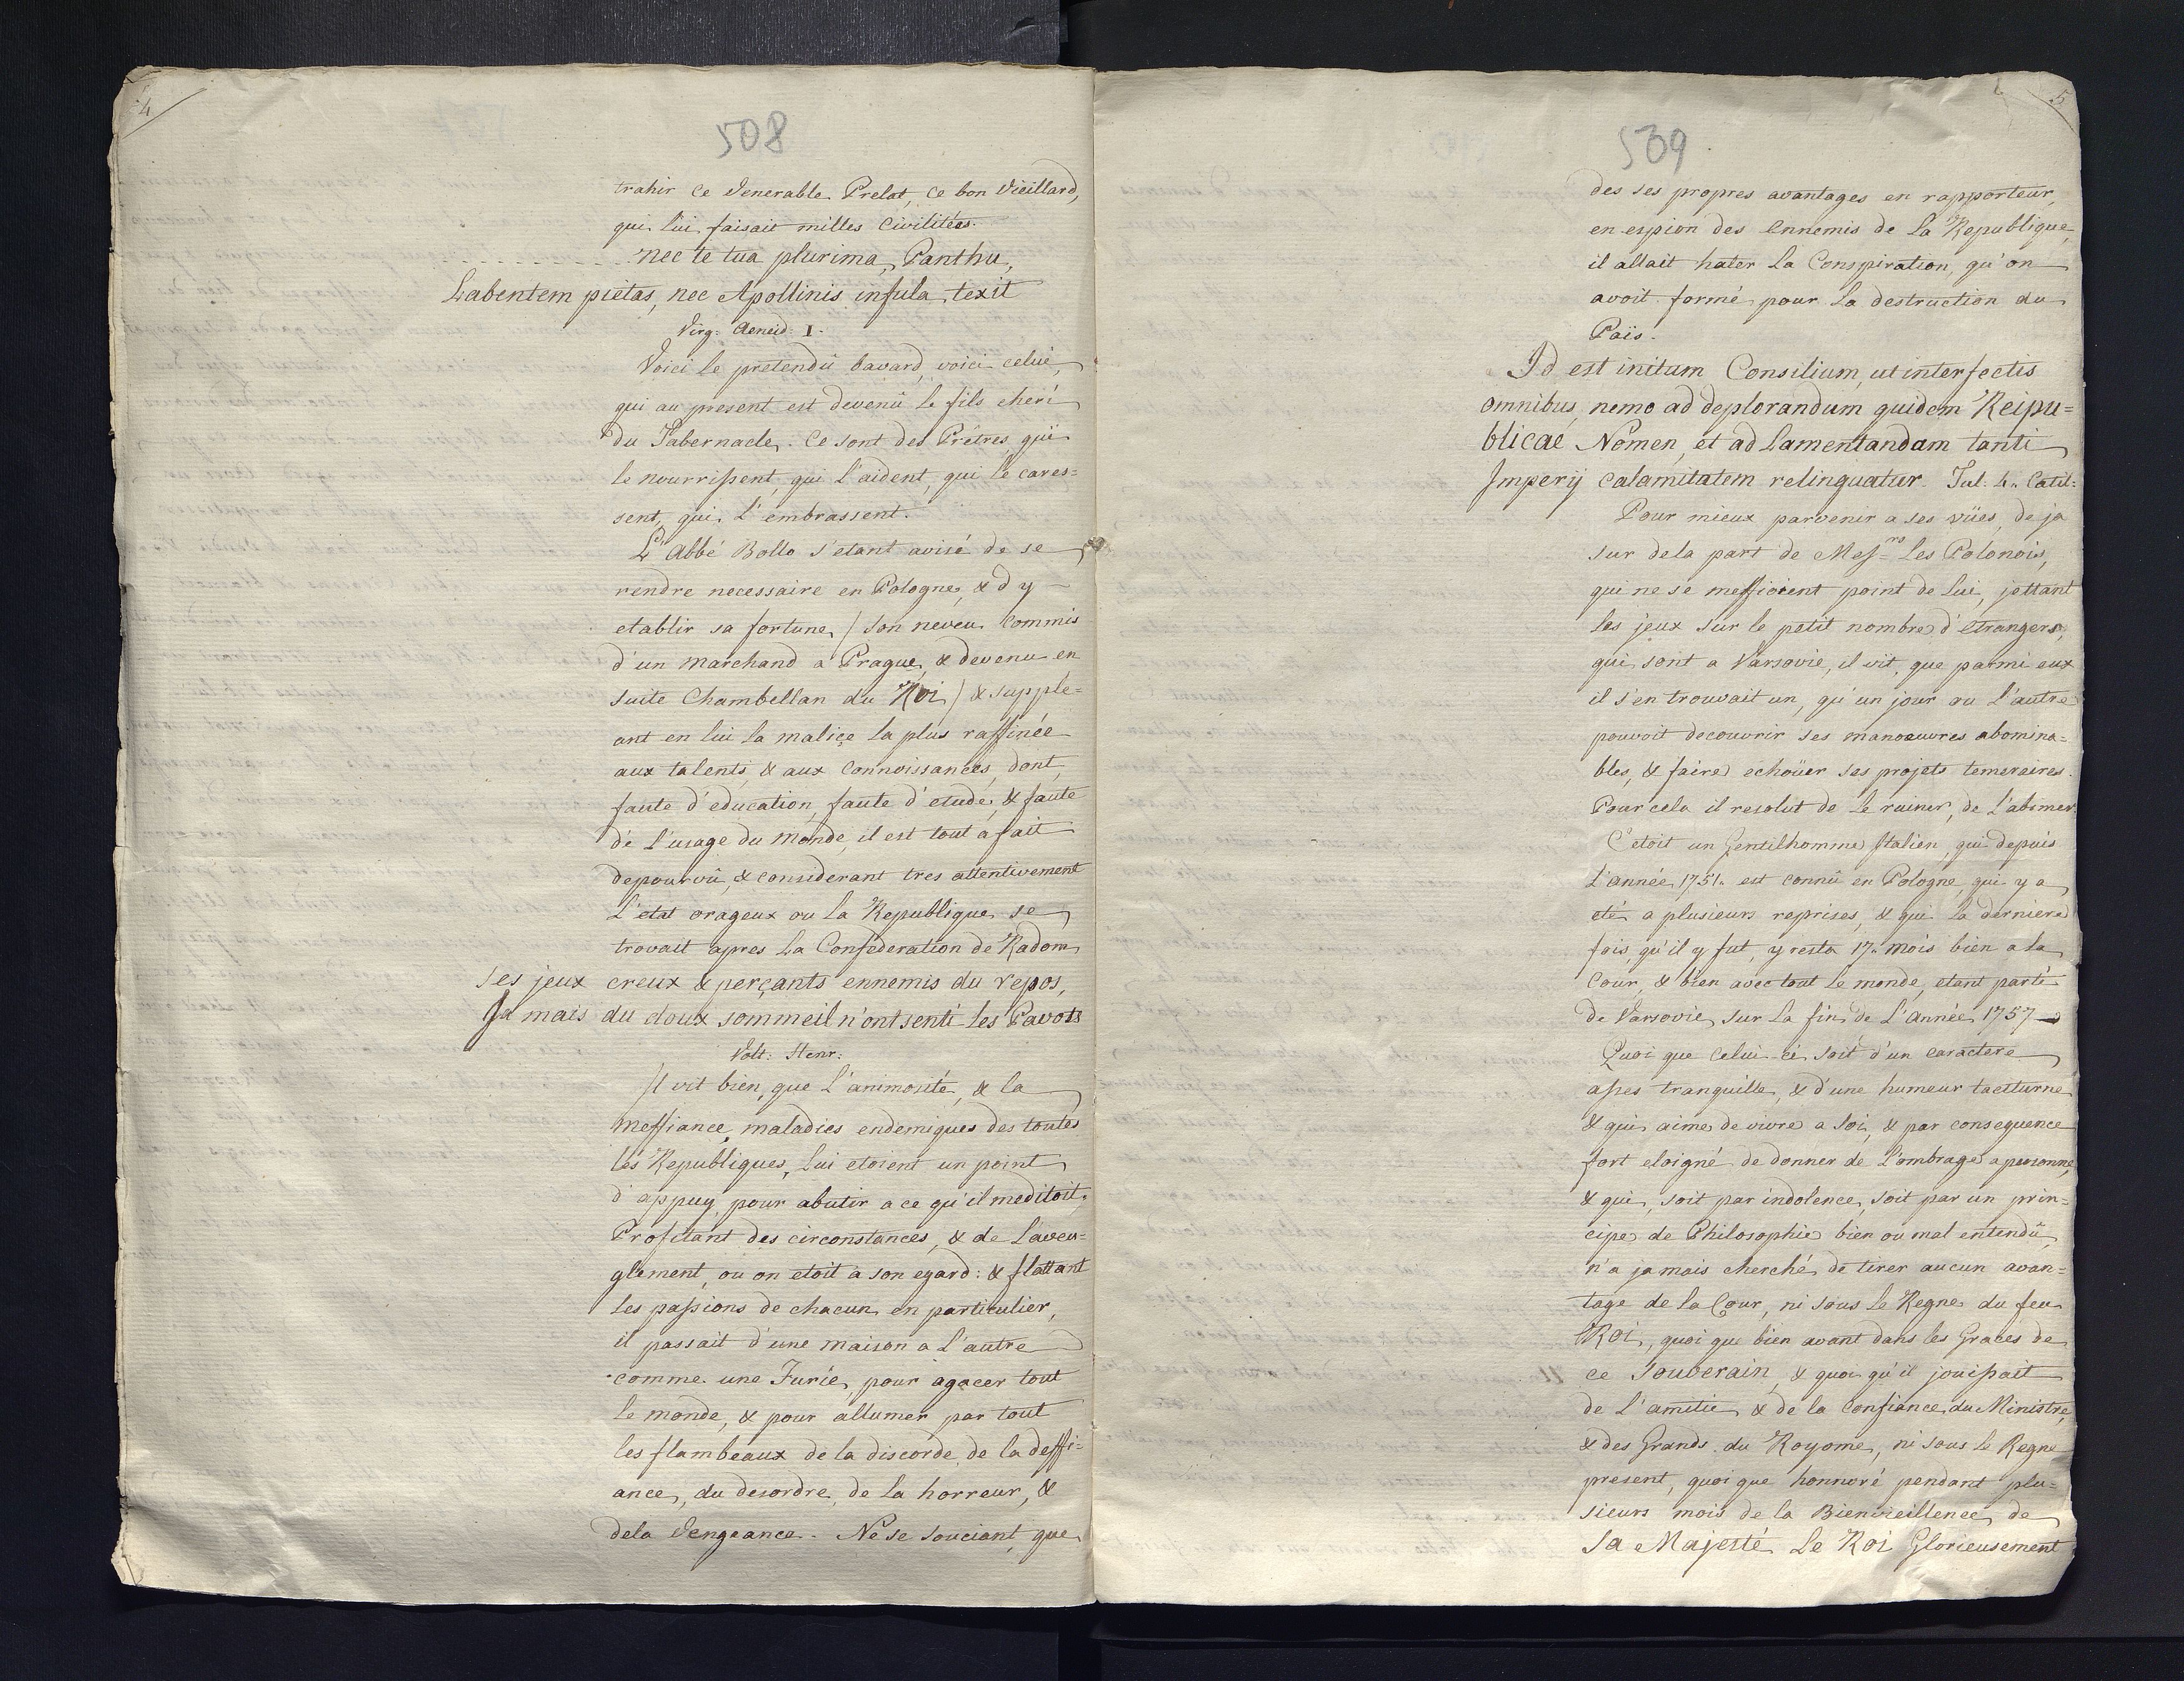 4
508
trahir ce Venerable Prelat, ce bon Vieillard,
qui lui faisait milles Civilitées.
nec te tua plurima, Panthu,
Labentem pietas, nec Apollinis infula texit
Virg: Aeneid: I.
Voici le pretendû bavard, voici celui,
qui au present est devenû le fils cheri
du Tabernacle. Ce sont des Prêtres, qui
le nourrissent, qui l'aident, qui le cares=
sent, qui l'embrassent.
L'Abbé Bollo s'etant avisé de se
rendre necessaire en Pologne, & d'y
etablir sa fortune, / son neveu Commis
d'un marchand a Prague, & devenu en
suite Chambellan du Roi / & supple=
ant en lui la malice la plus raffinée
aux talents, & aux Connoissances, dont,
faute d'education, faute d'etude, & faute
de l'usage du Monde, il est tout a fait
depourvû, & considerant tres attentivement
L'etat orageux ou la Republique se
trovait apres la Confederation de Radom
ses jeux creux & perçants ennemis du repos,
Ja mais du doux sommeil n'ont senti les Pavots
Volt: Henr:
Il vit bien, que L'animosité, & la
meffiance, maladies endemiques des toutes
les Republiques, Lui etoient un point
d'appuy, pour abutir a ce qu'il meditoit.
Profitant des circonstances, & de L'aveu=
glement, ou on etoit a son egard: & flattant
les passions de chacun en particulier,
il passait d'une maison a L'autre
comme une Furie, pour agacer tout
le monde, & pour allumer par tout
les flambeaux de la discorde, de la deffi=
ance, du desordre, de la horreur, &
dela Vengeance. Ne se souciant, que
5
509
des ses propres avantages en rapporteur,
en espion des Ennemis de La Republique,
il allait hater La Conspiration, qu'on
avoit formé pour La destruction du
Païs.
Id est initum Consilium, ut interfectis
omnibus, nemo ad deplorandum quidem Reipu=
blicae Nomen, et ad Lamentandam tanti
Imperij calamitatem relinquatur. Tul. 4. Catil:
Pour mieux parvenir a ses vües, de ja
sur dela part de Mess:rs Les Polonois,
qui ne se meffioient point de Lui, jettant
les jeux sur le petit nombre d'etrangers,
qui sont a Varsovie, il vit, que parmi eux
il s'en trouvait un, qu'un jour ou l'autre
pouvoit decouvrir ses manoeuvres abomina=
bles, & faire echoüer ses projets temeraires.
Pour cela il resolut de le ruiner, de L'abimer.
C'etoit un Gentilhomme Italien, qui depuis
L'année 1751. est connû en Pologne, qui y a
eté a plusieurs reprises, & qui la derniere
fois, qu'il y fut, y resta 17. mois bien a la
Cour, & bien avec tout le monde, etant parti
de Varsovie sur la fin de L'Année 1757
Quoi que Celui-ci soit d'un caractere
asses tranquille, & d'une humeur taciturne
& qui aime de vivre a soi, & par consequence
fort eloigné de donner de L'ombrage a personne,
& qui, soit par indolence, soit par un prin=
cipe de Philosophie bien ou mal entendû,
n'a ja mais cherché de tirer aucun avan=
tage de la Cour, ni sous le Regne du feu
Roi, quoi que bien avant dans les Graces de
ce Souverain, & quoi qu'il jouissait
de L'amitié, & de la Confiance du Ministre,
& des Grands du Royome, ni sous le Regne
present, quoi que honnoré pendant plu=
sieurs mois de la Bienvieillence de
Sa Majesté Le Roi Glorieusement